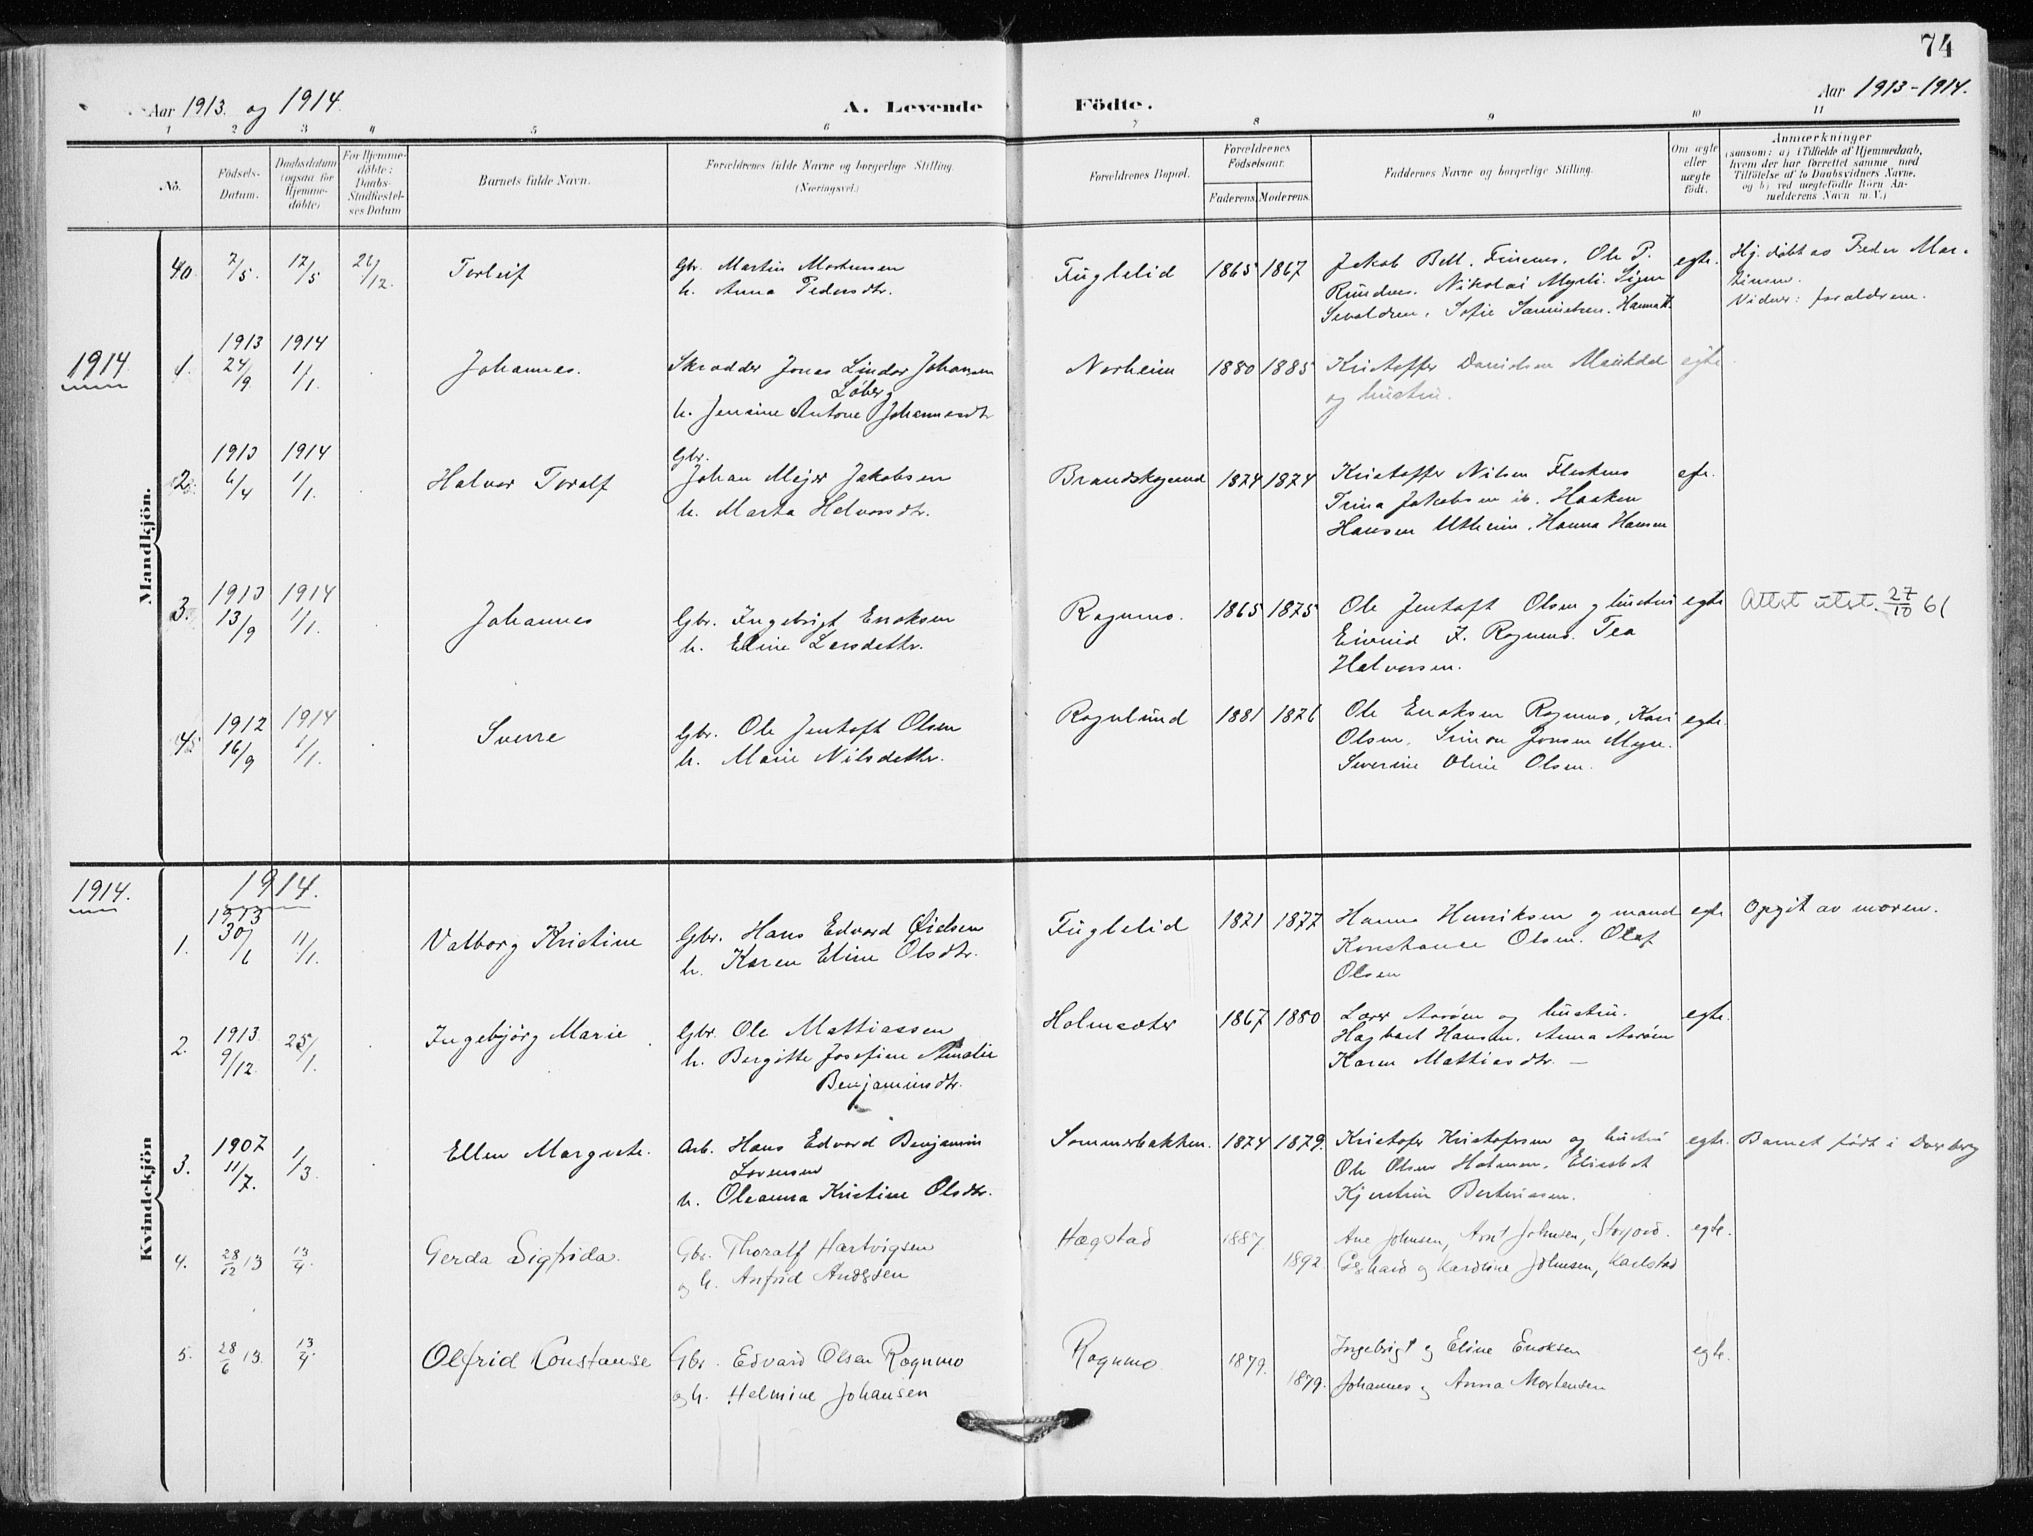 74
Aar 1913 og 1914.
A. Levende Födte.
Aar 1913-1914.
1 2 3 4 5 6 7 8 9 10 11
No.
Födsels-Datum.
Daabsdatum (ogsaa for Hjemme-döbte)
For Hjemme-döbte: Daabs-Stadfæstel-ses Datum
Barnets fulde Navn.
Forældrenes fulde Navne og borgerlige Stilling.
(Næringsvei.)
Forældrenes Bopæl.
Forældrenes Födselsaar.
Faderens. Moderens.
Faddernes Navne og borgerlige Stilling.
Om ægte eller uægte födt.
Anmærkninger
(saasom: a) i Tilfælde af Hjemmedaab,
hvem der har forrettet samme, med
Tilföielse af to Daabsvidners Navne,
og b) ved uægtefödte Börn An-
melderens Navn m. V.)
Mandkjön.
40. 7/5. 17/5 26/12. Torleif
Gbr. Martin Mortensen
h. Anna Pedersdtr.
Fuglelid 1865 1867
Jakob Bell. Finsnes. Ole P.
Rundnes. Nikolai Myrli.
Sevaldsen. Sofie Samuelsen. Hanna
egte.
Hj. döbt av Peder Mar-
tinsen.
Vidner: forældrene.
1914.
1. 1913 24/9 1914 1/1. Johannes.
Skrædder Jonas Lindor Johansen
Løberg
h. Jensine Antone Johannesdtr
Norheim 1880 1885
Kristoffer Danielsen
og hustru.
egte
2. 1913 6/4 1914 1/1. Halvor Toralf
Gbr.
Johan Mejer Jakobsen
h. Marta Halvorsdtr.
Brandskognd 1874 1874
Kristoffer Nilsen
Trina Jakobsen ib. Haaken
Hansen Utheim. Hanna Hansen
egte.
3. 1913 13/9 1914 1/1. Johannes
Gbr. Ingebrigt Enoksen
h. Eline Larsdatter.
Rognmo. 1865 1875
Ole Jentoft Olsen og hustru
Eivind I. Rognmo. Tea
Halvorsen.
egte
Attst utst. 27/10 61
4. 1912 16/9 1914 1/1. Sverre
Gbr. Ole Jentoft Olsen
h. Marie Nilsdatter.
Rognlund 1881 1876
Ole Enoksen Rognmo, Kari
Olsen. Simon Jonsen Myre.
Severine Oline Olsen.
egte.
1914.
Kvindekjön
1914.
1. 1913 30/6 11/1. Valborg Kristine
Gbr. Hans Edvard Eidesen
h. Karen Eline Olsdtr.
Fuglelid 1871 1877
Hanna Henriksen og mand
Konstanse Olsen. Olaf
Olsen
egte
Opgit av moren.
2. 1913 9/12. 25/1. Ingebjörg Marie
Gbr. Ole Mattiassen
h. Bergitte Josefine Amalie
Benjaminsdtr.
Holmsæter 1867 1880
Lærer Aarøen og hustru.
Hagbart Hansen. Anna Aarøen
Karen Mattiasdtr. —
egte.
3. 1907 11/7. 1/3. Ellen Margrete.
Arb. Hans Edvard Benjamin
Sørensen
h. Oleanna Kristine Olsdtr.
Sommerbakken. 1874 1879.
Kristofer Kristofersen og hustru
Ole Olsen Holmen. Elisabet
Kjerstine Berteussen.
egte.
Barnet født i Dverberg
4. 28/12 13 13/4. Gerda Sigfrida.
Gbr. Thoralf Hartvigsen
og h. Anfrid Andersen
Hægstad 1887 1892.
Ane Johnsen, Arnt Johnsen, Storjord.
Gerhard og Karoline Johnsen, Karlstad
egte.
5. 28/6 13. 13/4. Olfrid Constanse
Gbr. Edvard Olsen Rognmo
og h. Helmine Johansen
Rognmo 1879. 1879.
Ingebrigt og Eline Enoksen
Johannes og Anna Mortensen
egte.